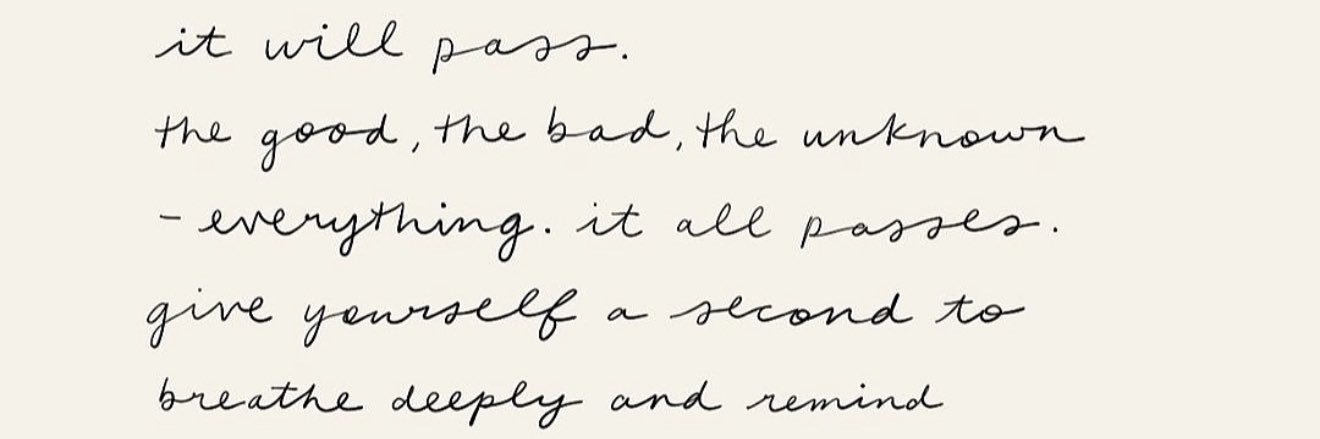 it will pass.
the good, the bad, the unknown
- everything. it all passes.
give yourself a second to
breathe deeply and remind